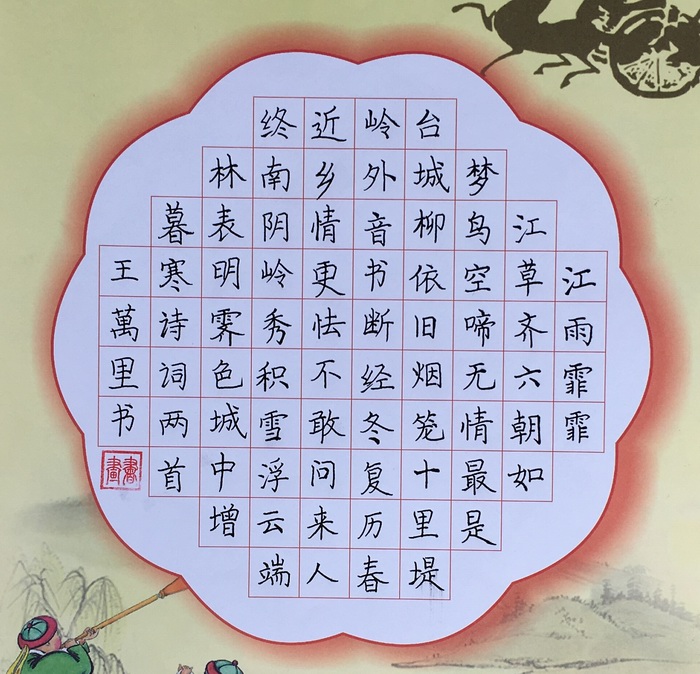 江雨霏霏
江草齐六朝如
梦鸟空啼无情最是
台城柳依旧烟笼十里堤
岭外音书断经冬复历春
近乡情更怯不敢问来人
终南阴岭秀积雪浮云端
林表明霁色城中增
暮寒诗词两首
王萬里书
書畫